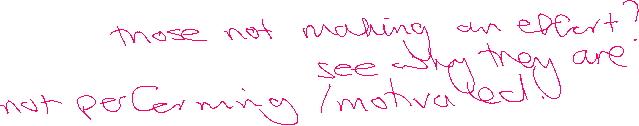 those not making an effort?
see why they are
not performing / motivated!